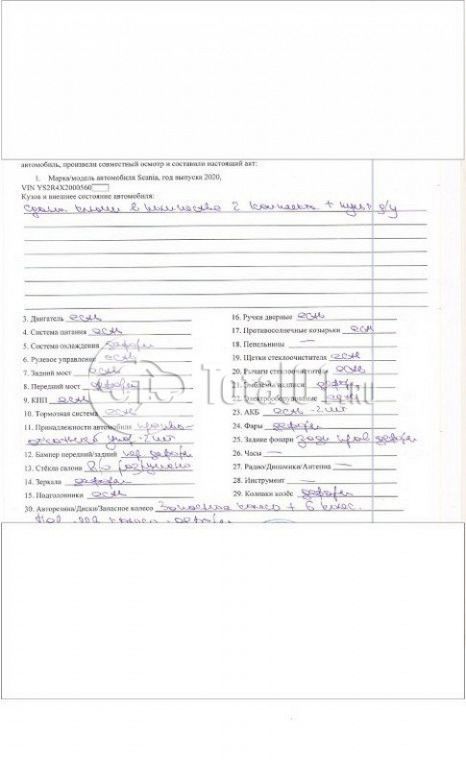 автомобиль, произвели совместный осмотр и составили настоящий акт:
1. Марка/модель автомобиля Scania, год выпуска 2020,
VIN YS2R4X2000560
Кузов и внешнее состояние автомобиля:
ключи в количестве 2 комплекта + д/у
3. Двигатель есть
4. Система питания есть
5. Система охлаждения дефект
6. Рулевое управление есть
7. Задний мост есть
8. Передний мост дефект
9. КПП есть
10. Тормозная система есть
11. Принадлежности автомобиля
2 шт
12. Бампер передний/задний пер дефект
13. Стёкла салона
14. Зеркала дефект
15. Подголовники есть
16. Ручки дверные есть
17. Противосолнечные козырьки есть
18. Пепельницы —
19. Щетки стеклоочистителя есть
20. Рычаги стеклоочистителя есть
21. Эмблемы/надписи дефект
22. Электрооборудование дефект
23. АКБ есть - 2 шт
24. Фары дефект
25. Задние фонари задн прав дефект
26. Часы —
27. Радио/Динамики/Антенна —
28. Инструмент —
29. Колпаки колёс дефект
30. Авторезина/Диски/Запасное колесо Запасное колесо + 6 колес.
Total01.ru